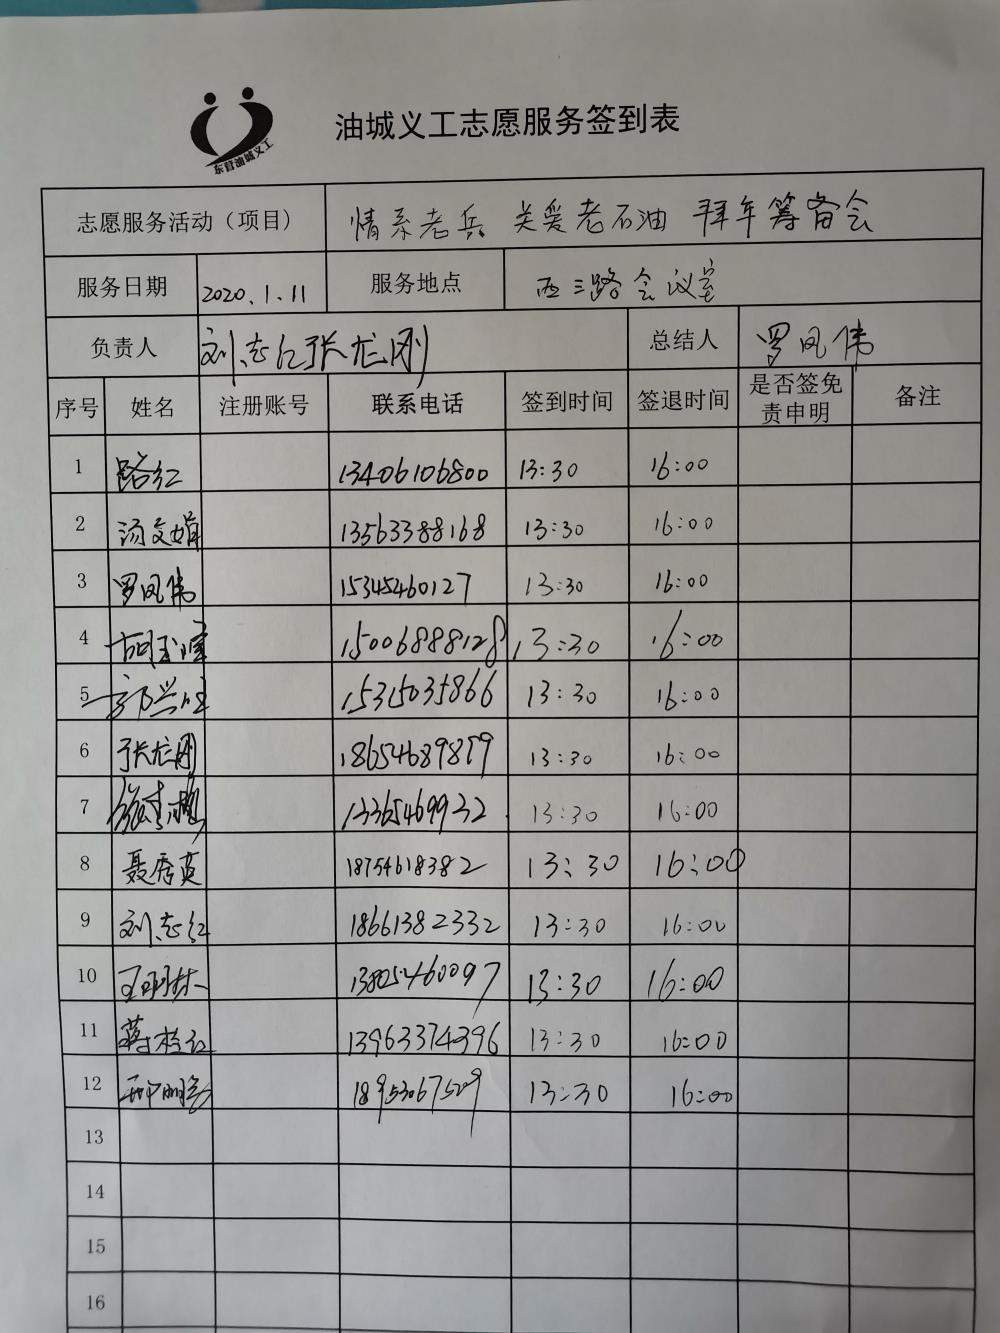 东营油城义工
油城义工志愿服务签到表
志愿服务活动（项目） 情系老兵 关爱老石油 拜年筹备会
服务日期 2020.1.11 服务地点 西三路会议室
负责人 刘志红 张龙刚 总结人 罗凤伟
序号 姓名 注册账号 联系电话 签到时间 签退时间 是否签免责申明 备注
1 路红 13406106800 13:30 16:00
2 汤文娟 13563388168 13:30 16:00
3 罗凤伟 15345460127 13:30 16:00
4 15006888128 13:30 16:00
5 15315035866 13:30 16:00
6 张龙刚 18654689879 13:30 16:00
7 13365469932 13:30 16:00
8 聂秀英 18754618382 13:30 16:00
9 刘志红 18661382332 13:30 16:00
10 王明林 13805460097 13:30 16:00
11 蒋桂红 13963374396 13:30 16:00
12 18953067509 13:30 16:00
13
14
15
16